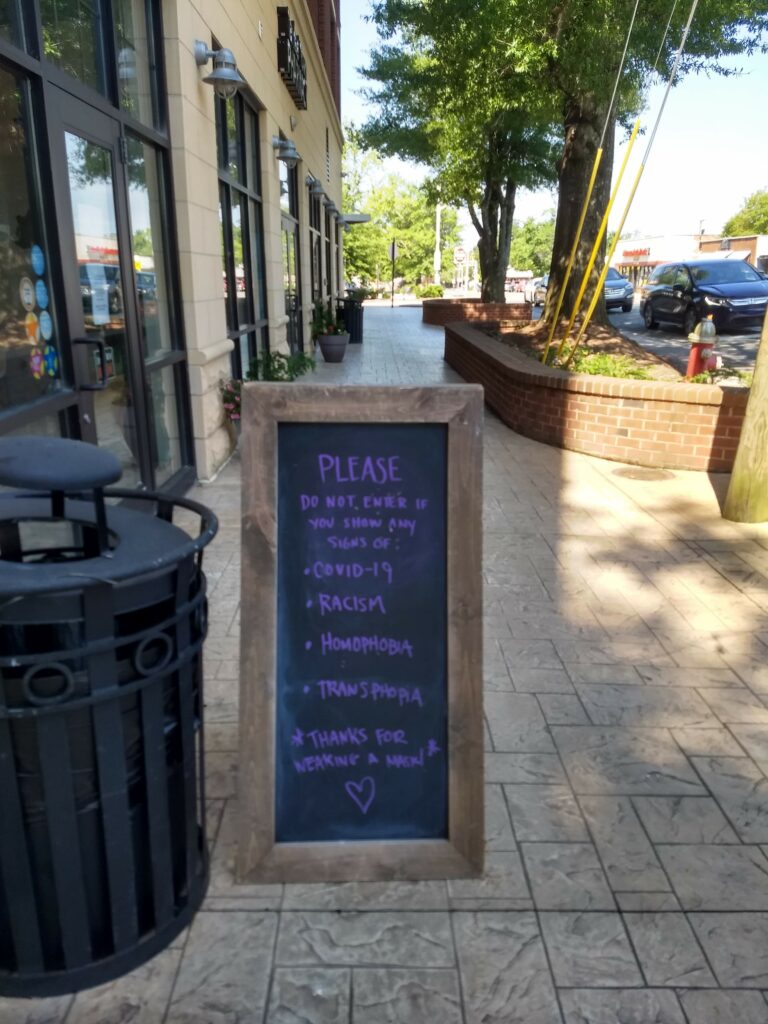 PLEASE
DO NOT ENTER IF
YOU SHOW ANY
SIGNS OF:
• COVID-19
• RACISM
• HOMOPHOBIA
• TRANSPHOPIA
*THANKS FOR
WEARING A MASK!*